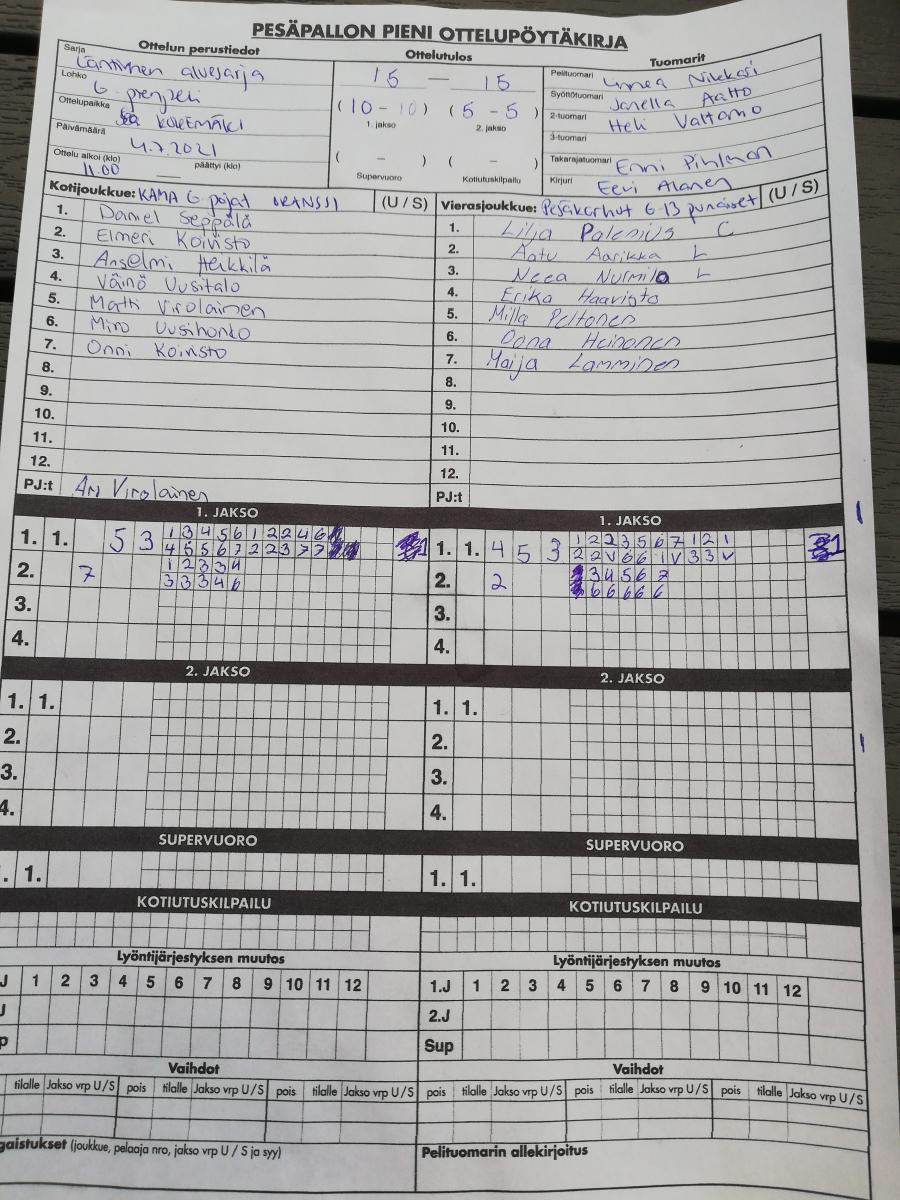 PESÄPALLON PIENI OTTELUPÖYTÄKIRJA
Ottelun perustiedot Ottelutulos Tuomarit
Sarja Läntinen aluesarja
Lohko G
Ottelupaikka KOKEMÄKI
Päivämäärä 4.7.2021
Ottelu alkoi (klo) 11.00 päättyi (klo)
15 — 15
(10 - 10) (5 - 5)
1. jakso 2. jakso
( - ) ( - )
Supervuoro Kotiutuskilpailu
Pelituomari Linnea
Syöttötuomari Janella Aalto
2-tuomari Heli Valtamo
3-tuomari
Takarajatuomari Enni Pihlman
Kirjuri Eevi Alanen
Kotijoukkue: KAMA G pojat ORANSSI (U / S)
1. Daniel Seppälä
2. Elmeri Koivisto
3. Anselmi Heikkilä
4. Väinö Uusitalo
5. Matti Virolainen
6. Miro Uusihonko
7. Onni Koivisto
8.
9.
10.
11.
12.
PJ:t Ari Virolainen
Vierasjoukkue: Pesäkarhut G-13 punaiset (U / S)
1. Lilja Palenius C
2. Aatu Aarikka L
3. Neea Nurmila L
4. Erika Haavisto
5. Milla Peltonen
6. Oona Heinonen
7. Maija Lamminen
8.
9.
10.
11.
12.
PJ:t
1. JAKSO 1. JAKSO
1. 1. 5 3 1 3 4 5 6 1 2 2 4 6
4 5 5 6 7 2 2 3 7 7
2. 7 1 2 3 3 4
3 3 3 4 6
3.
4.
1. 1. 4 5 3 1 2 2 3 5 6 7 1 2 1
2 2 V 6 6 1 V 3 3 V
2. 2 3 4 5 6 7
6 6 6 6 6
3.
4.
2. JAKSO 2. JAKSO
1. 1. 1. 1.
2. 2.
3. 3.
4. 4.
SUPERVUORO SUPERVUORO
. 1. 1. 1.
KOTIUTUSKILPAILU KOTIUTUSKILPAILU
Lyöntijärjestyksen muutos Lyöntijärjestyksen muutos
J 1 2 3 4 5 6 7 8 9 10 11 12 1.J 1 2 3 4 5 6 7 8 9 10 11 12
J 2.J
p Sup
Vaihdot Vaihdot
tilalle Jakso vrp U/S pois tilalle Jakso vrp U/S pois tilalle Jakso vrp U/S pois tilalle Jakso vrp U/S pois tilalle Jakso vrp U/S pois tilalle Jakso vrp U/S
gaistukset (joukkue, pelaaja nro, jakso vrp U / S ja syy) Pelituomarin allekirjoitus